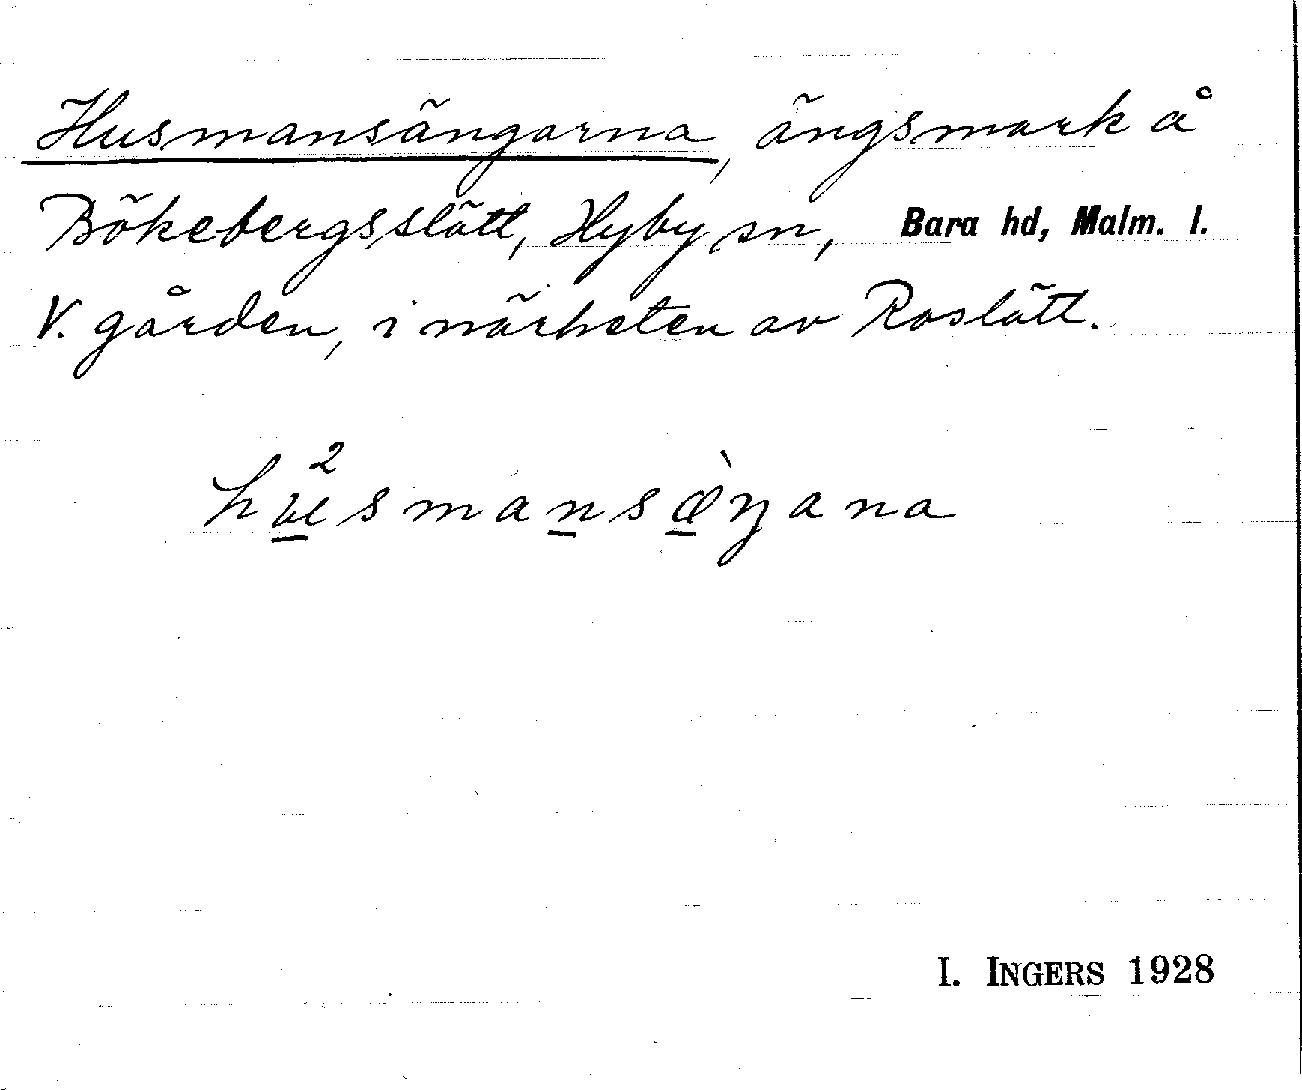 Husmansängarna, ängsmark å
Bökebergsslätt, Hyby sn, Bara hd, Malm. l.
V. gården, i närheten av Roslätt.
hu̲²sman̲sæ̲̀ŋana
I. INGERS 1928